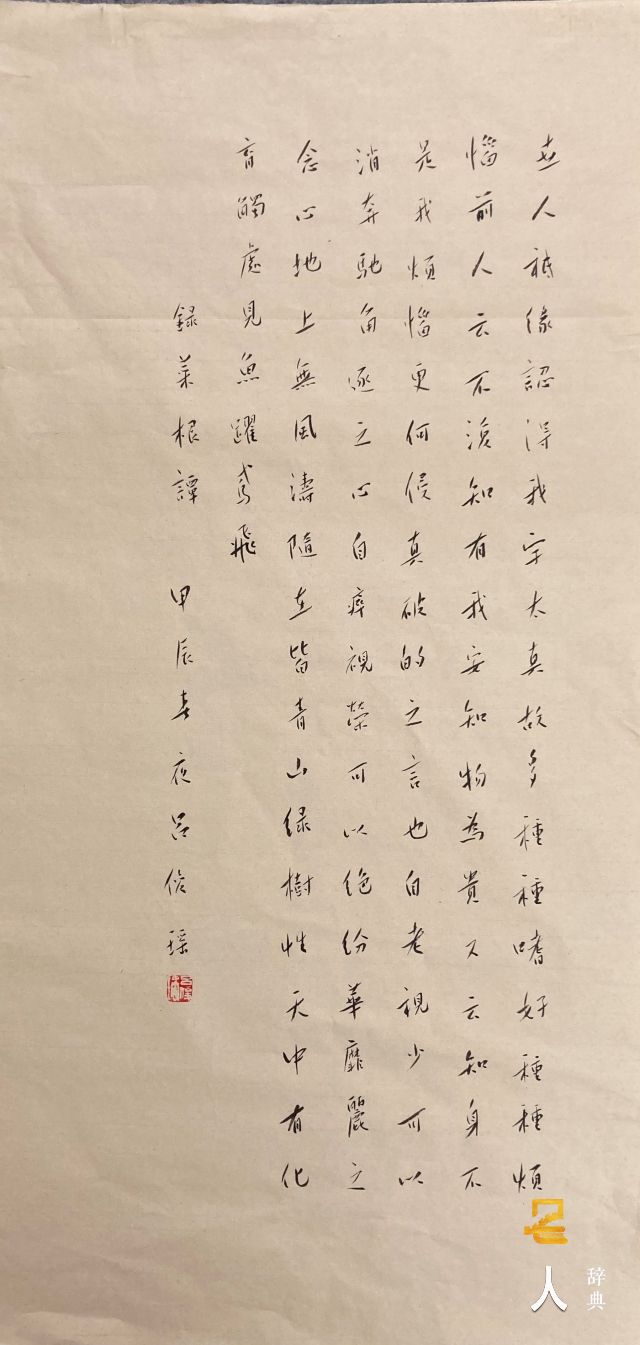 世人祇緣認得我字太真故多種種嗜好種種煩
惱前人云不復知有我安知物為貴又云知身不
是我煩惱更何侵真破的之言也自老視少可以
消奔馳角逐之心自瘁視榮可以絕紛華靡麗之
念心地上無風濤隨在皆青山綠樹性天中有化
育觸處見魚躍鳶飛
錄菜根譚 甲辰春夜呂
名人辞典